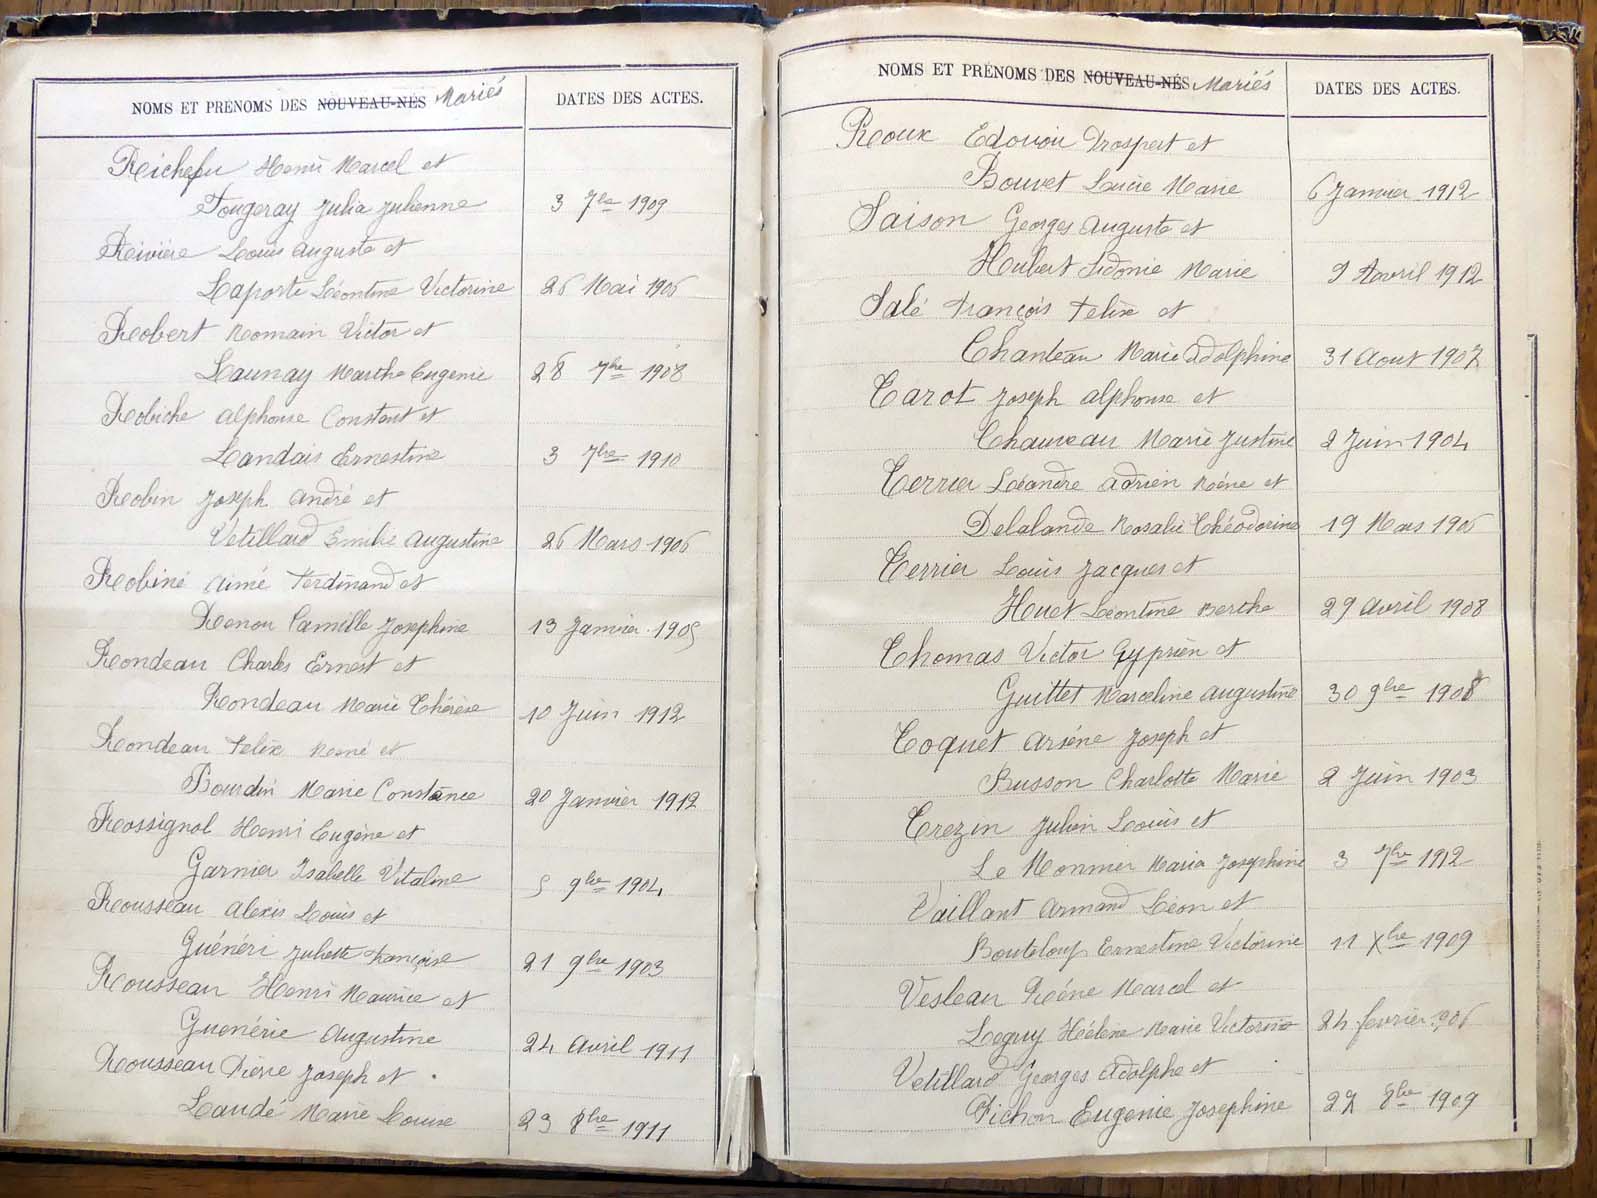 NOMS ET PRÉNOMS DES NOUVEAU-NÉS Mariés
DATES DES ACTES.
Richefeu Henri Marcel et
Fougeray Julia Julienne 3 7bre 1909
Rivière Louis Auguste et
Laporte Léontine Victorine 26 Mai 1906
Robert Romain Victor et
Launay Marthe Eugenie 28 7bre 1908
Robiche Alphonse Constant et
Landais Ernestine 3 7bre 1910
Robin Joseph André et
Vetillard Emilie Augustine 26 Mars 1906
Robiné Aimé Ferdinand et
Renou Camille Josephine 13 Janvier 1905
Rondeau Charles Ernest et
Rondeau Marie Thérèse 10 Juin 1912
Rondeau Felix René et
Bourdin Marie Constance 20 Janvier 1912
Rossignol Henri Eugène et
Garnier Isabelle Vitaline 5 9bre 1904
Rousseau Alexis Louis et
Guénéri Juliette Françoise 21 9bre 1903
Rousseau Henri Maurice et
Guenérie Augustine 24 Avril 1911
Rousseau Pierre Joseph et
Laudé Marie Louise 23 8bre 1911
NOMS ET PRÉNOMS DES NOUVEAU-NÉS Mariés
DATES DES ACTES.
Roux Prospert et
Bouvet Lucie Marie 6 Janvier 1912
Saison Georges Auguste et
Hubert Sidonie Marie 9 Avril 1912
Salé François Felix et
Chanteau Marie Adolphine 31 Aout 1907
Tarot Joseph Alphonse et
Chauveau Marie Justine 2 Juin 1904
Terrier Léandre Adrien Réne et
Delalande Rosalie Théodorine 19 Mars 1906
Terrier Louis Jacques et
Huet Léontine Berthe 29 Avril 1908
Thomas Victor Cyprien et
Guittet Marceline Augustine 30 9bre 1908
Toquet Arséne Joseph et
Busson Charlotte Marie 2 Juin 1903
Trezin Julien Louis et
Le Monnier Maria Josephine 3 7bre 1912
Vaillant Armand Léon et
Bouteloup Ernestine Victorine 11 Xbre 1909
Vesleau Réne Marcel et
Leguy Hélène Marie Victorine 24 fevrier 1906
Vetillard Georges Adolphe et
Pichon Eugenie Josephine 27 8bre 1909